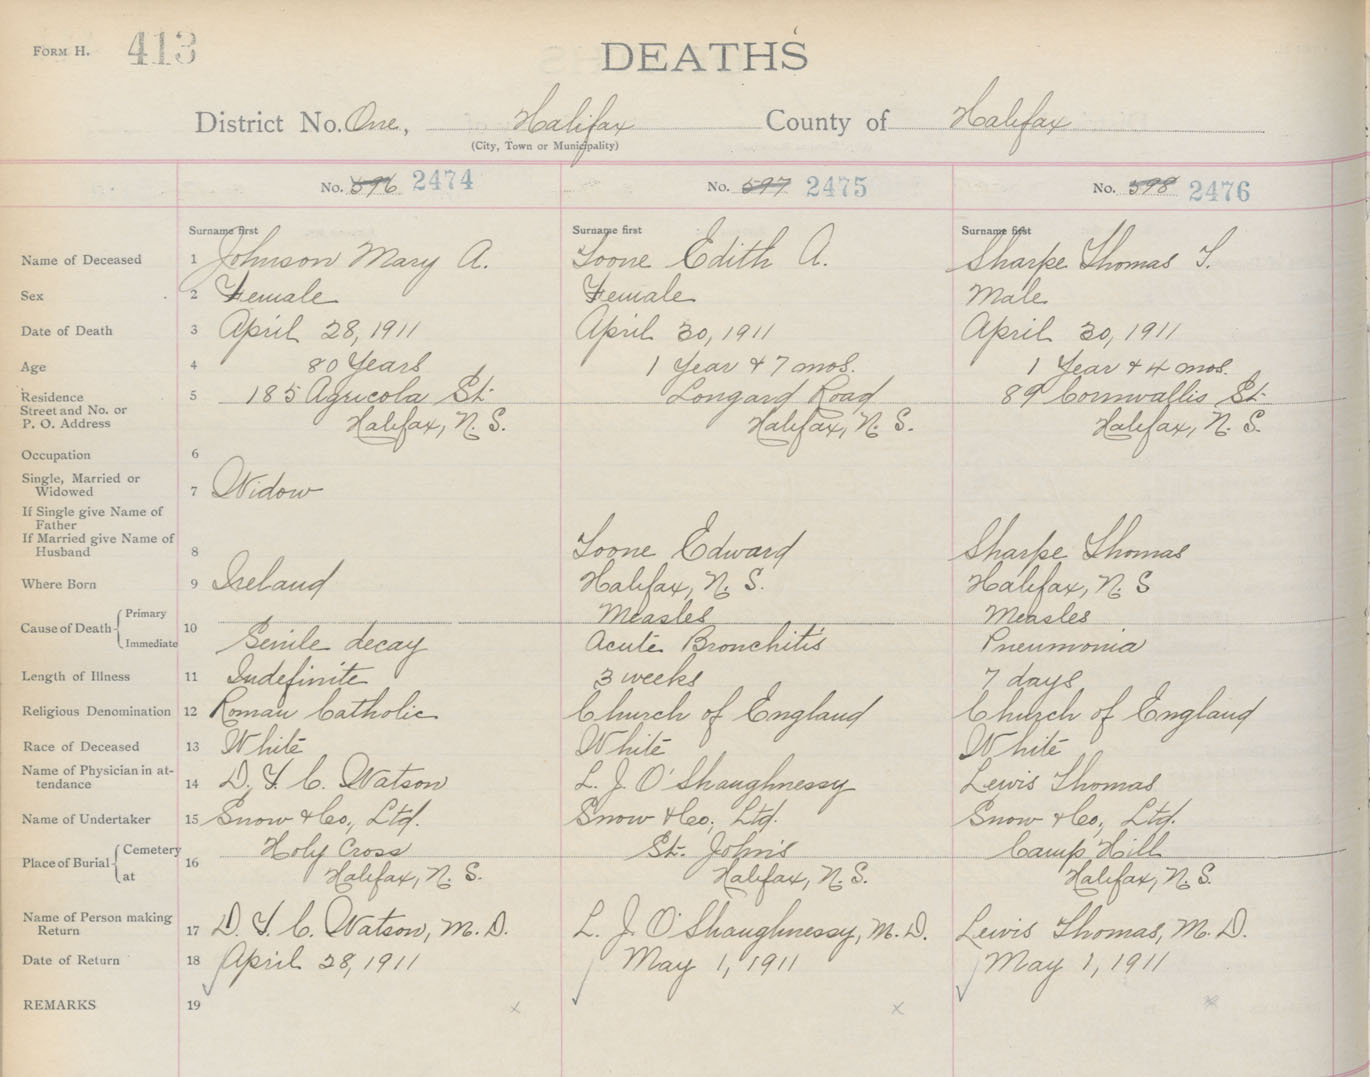 FORM H. 413 DEATHS
District No. One, Halifax County of Halifax
(City, Town or Municipality)
No. 596 2474 No. 597 2475 No. 598 2476
Surname first Surname first Surname first
Name of Deceased 1 Johnson Mary A. Toone Edith A. Sharpe Thomas T.
Sex 2 Female Female Male
Date of Death 3 April 28, 1911 April 30, 1911 April 30, 1911
Age 4 80 Years 1 Year & 7 mos. 1 Year & 4 mos.
Residence 5 185 Agricola St. Longard Road 89 Cornwallis St.
Street and No. or
P. O. Address Halifax, N. S. Halifax, N. S. Halifax, N. S.
Occupation 6
Single, Married or
Widowed 7 Widow
If Single give Name of
Father
If Married give Name of
Husband 8 Toone Edward Sharpe Thomas
Where Born 9 Ireland Halifax, N. S. Halifax, N. S
Cause of Death Primary 10 Measles Measles
Immediate Senile decay Acute Bronchitis Pneumonia
Length of Illness 11 Indefinite 3 weeks 7 days
Religious Denomination 12 Roman Catholic Church of England Church of England
Race of Deceased 13 White White White
Name of Physician in at-
tendance 14 D. T. C. Watson L. J. O'Shaughnessy Lewis Thomas
Name of Undertaker 15 Snow & Co., Ltd. Snow & Co., Ltd. Snow & Co., Ltd.
Place of Burial Cemetery 16 Holy Cross St. John's Camp Hill
at Halifax, N. S. Halifax, N. S. Halifax, N. S.
Name of Person making
Return 17 D. T. C. Watson, M. D. L. J. O'Shaughnessy, M. D. Lewis Thomas, M. D.
Date of Return 18 April 28, 1911 May 1, 1911 May 1, 1911
REMARKS 19 x x x